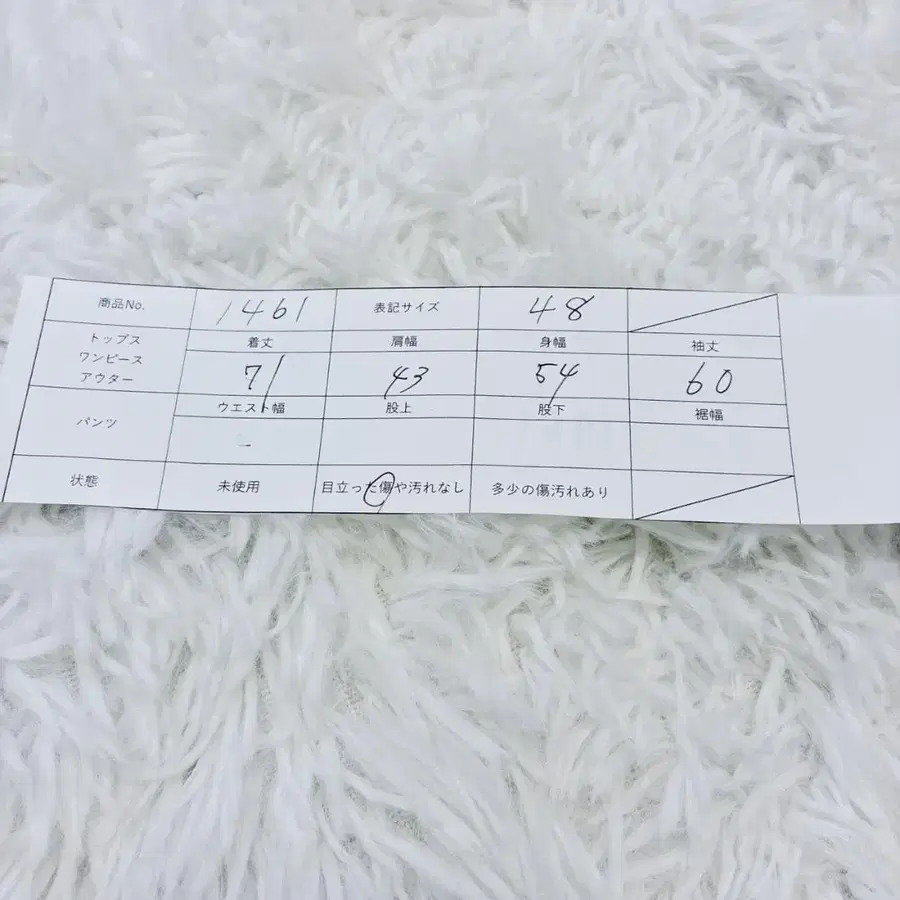 商品No. 1461 表記サイズ 48
トップス
ワンピース
アウター
着丈 肩幅 身幅 袖丈
71 43 54 60
パンツ
ウエスト幅 股上 股下 裾幅
状態 未使用 目立った傷や汚れなし 多少の傷汚れあり